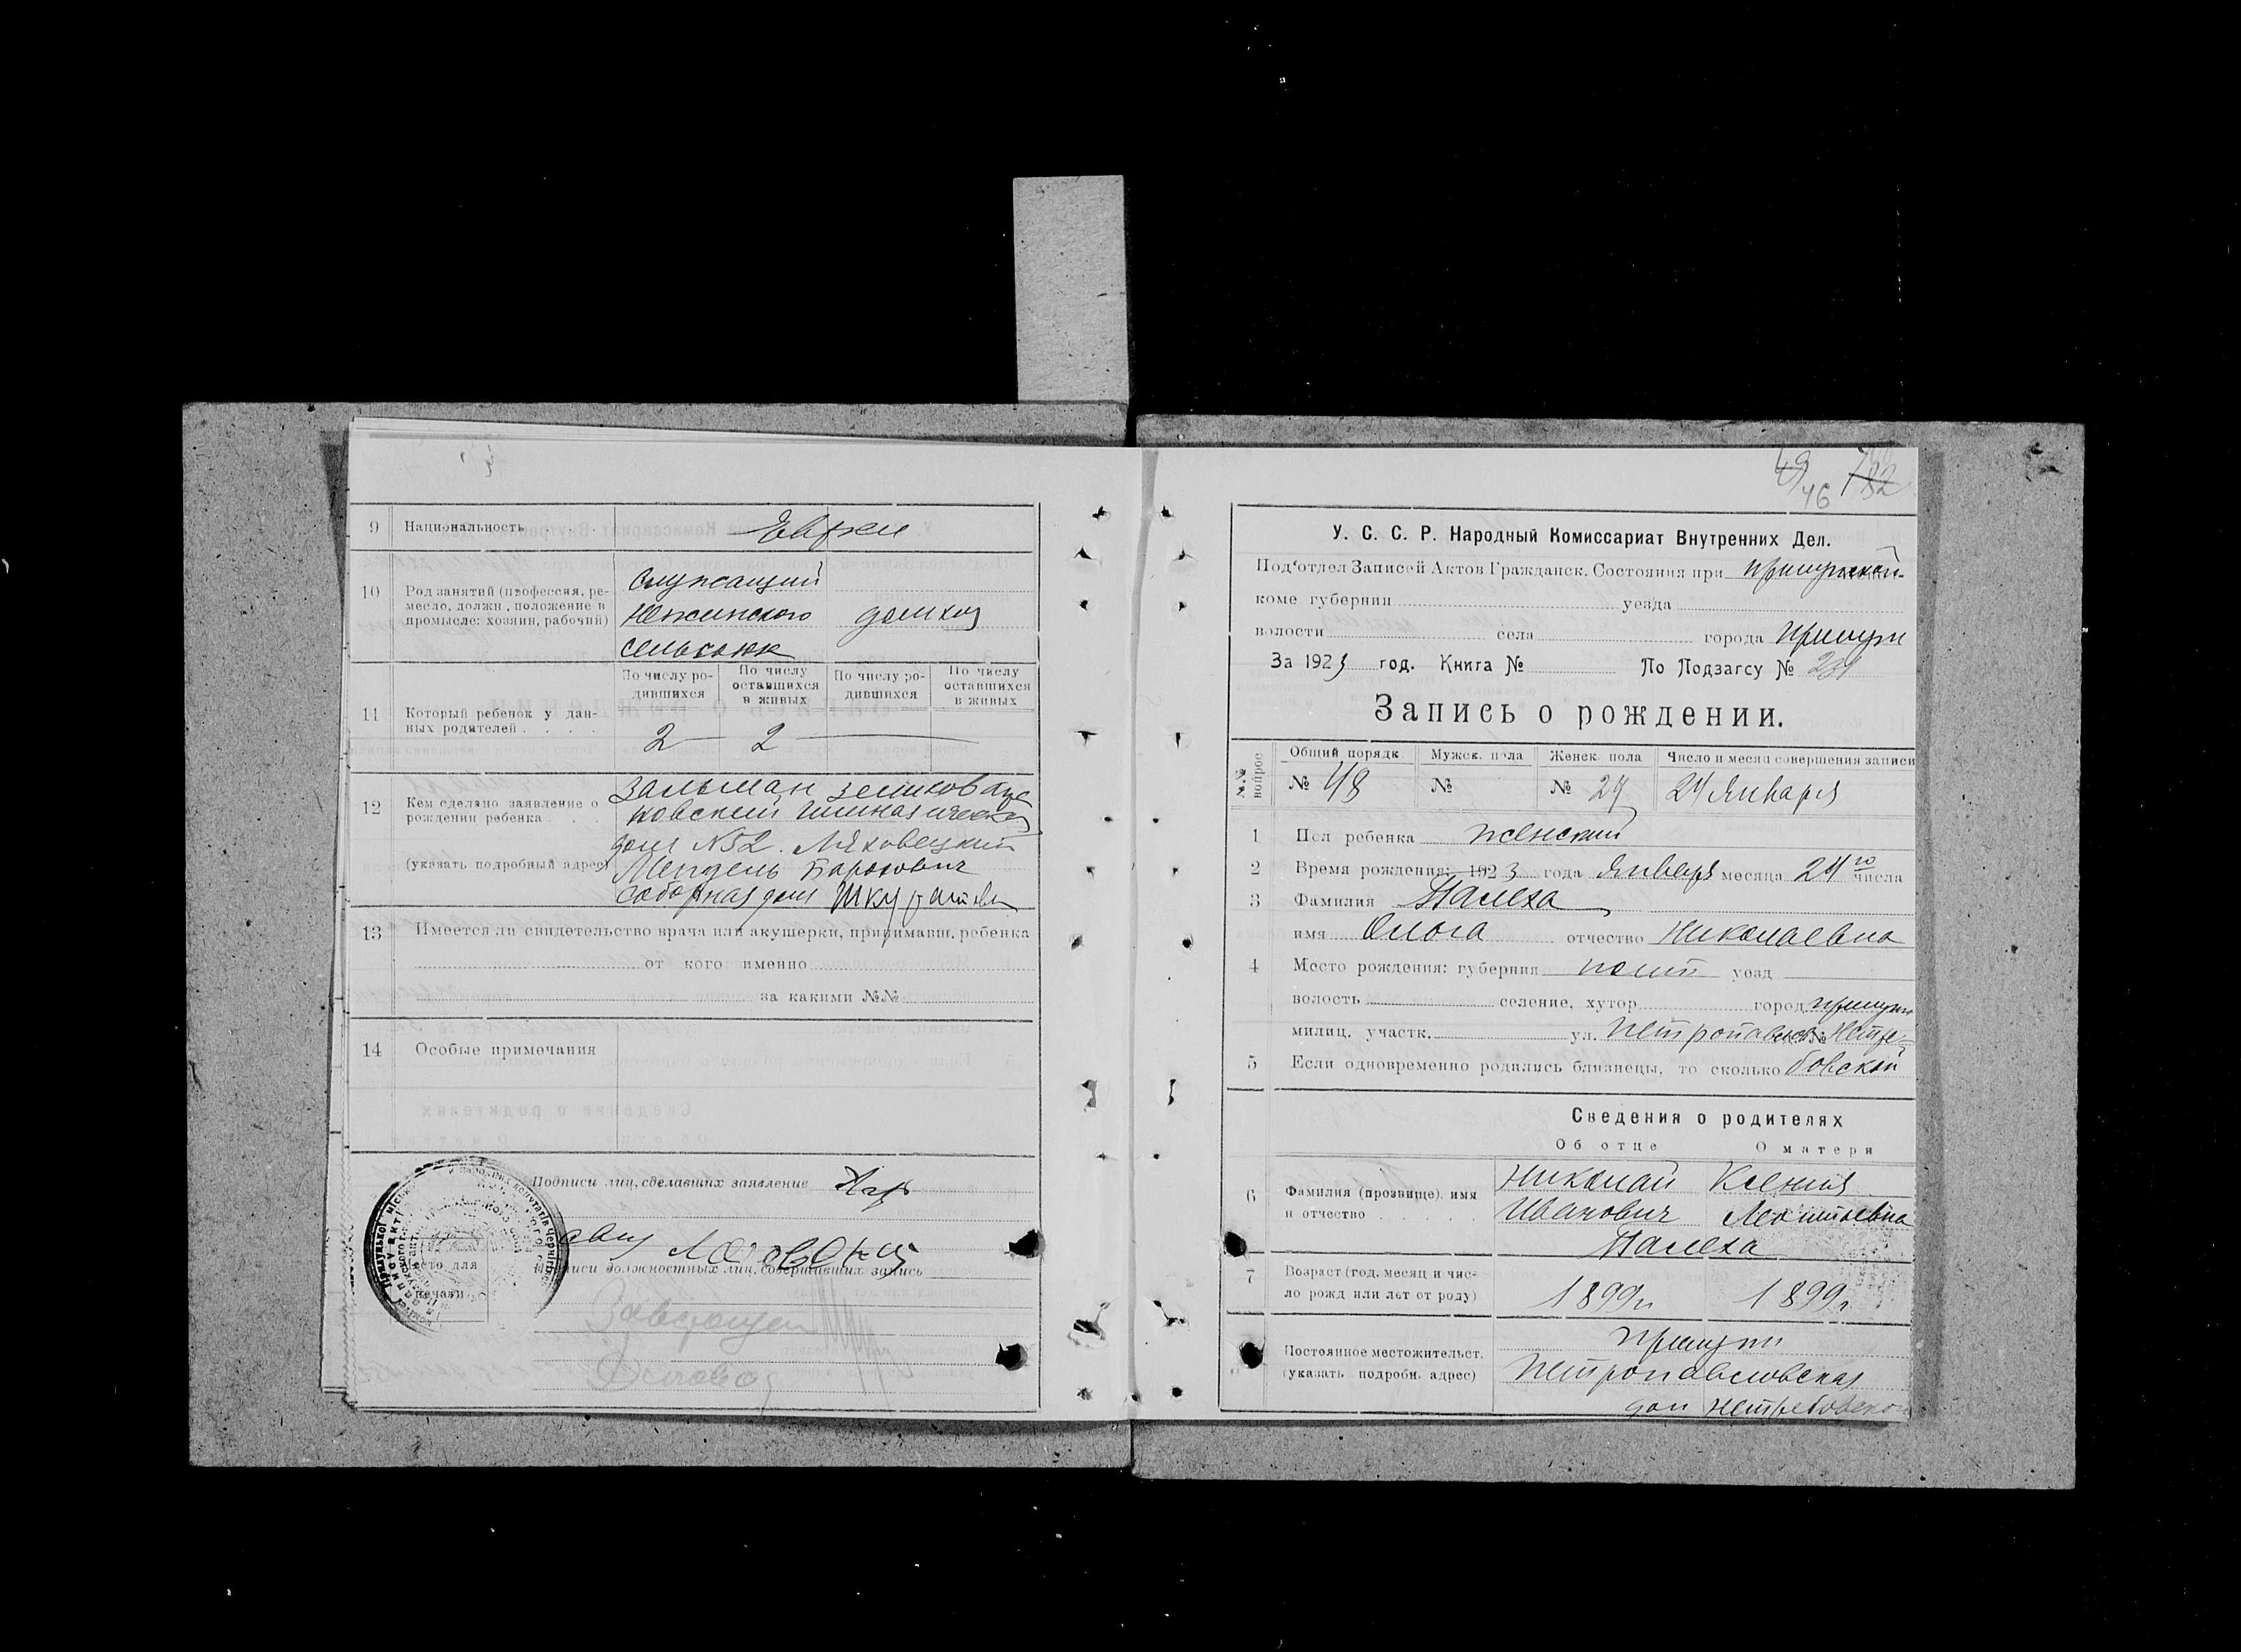 9 Национальность Евреи
10 Род занятий (профессия, ре-
месло, должн., положение в
промысле: хозяин, рабочий)
Служащий
Нежинского
сельсоюк
домхоз
11 Который ребенок у дан-
ных родителей
По числу ро-
дившихся
По числу
оставшихся
в живых
По числу ро-
дившихся
По числу
оставшихся
в живых
2 2
12 Кем сделано заявление о
рождении ребенка
(указать подробный адрес)
Зальман
дом №52. Ляховецкий
Мендель Борохович
Соборная дом
13 Имеется ли свидетельство врача или акушерки, принимавш. ребенка
от кого именно
за какими №№
14 Особые примечания
Подписи лиц, сделавших заявление
Подписи должностных лиц, совершивших запись
Место для
печати
49
46
У. С. С. Р. Народный Комиссариат Внутренних Дел.
Под'отдел Записей Актов Гражданск. Состояния при
коме губернии уезда
волости села города Прилуки
За 1923 год. Книга № По Подзагсу №
Запись о рождении.
№№ вопрос.
Общий порядк. Мужск. пола Женск. пола Число и месяц совершения записи
№ 48 № № 24 24 Января
1 Пол ребенка женский
2 Время рождения: 1923 года Январь месяца 24го числа
3 Фамилия
имя Ольга отчество Николаевна
4 Место рождения: губерния Полт уезд
волость селение, хутор город Прилуки
милиц. участк. ул. Петропавлов № Нетре-
5 Если одновременно родились близнецы, то сколько бовской
Сведения о родителях
Об отце О матери
6 Фамилия (прозвище), имя
и отчество
Николай Ксения
Иванович Леонтьевна
7 Возраст (год, месяц и чис-
ло рожд. или лет от роду)
1899г. 1899г.
Постоянное местожительст.
(указать подробн. адрес)
Прилуки
Петропавловская
дом Нетребовской